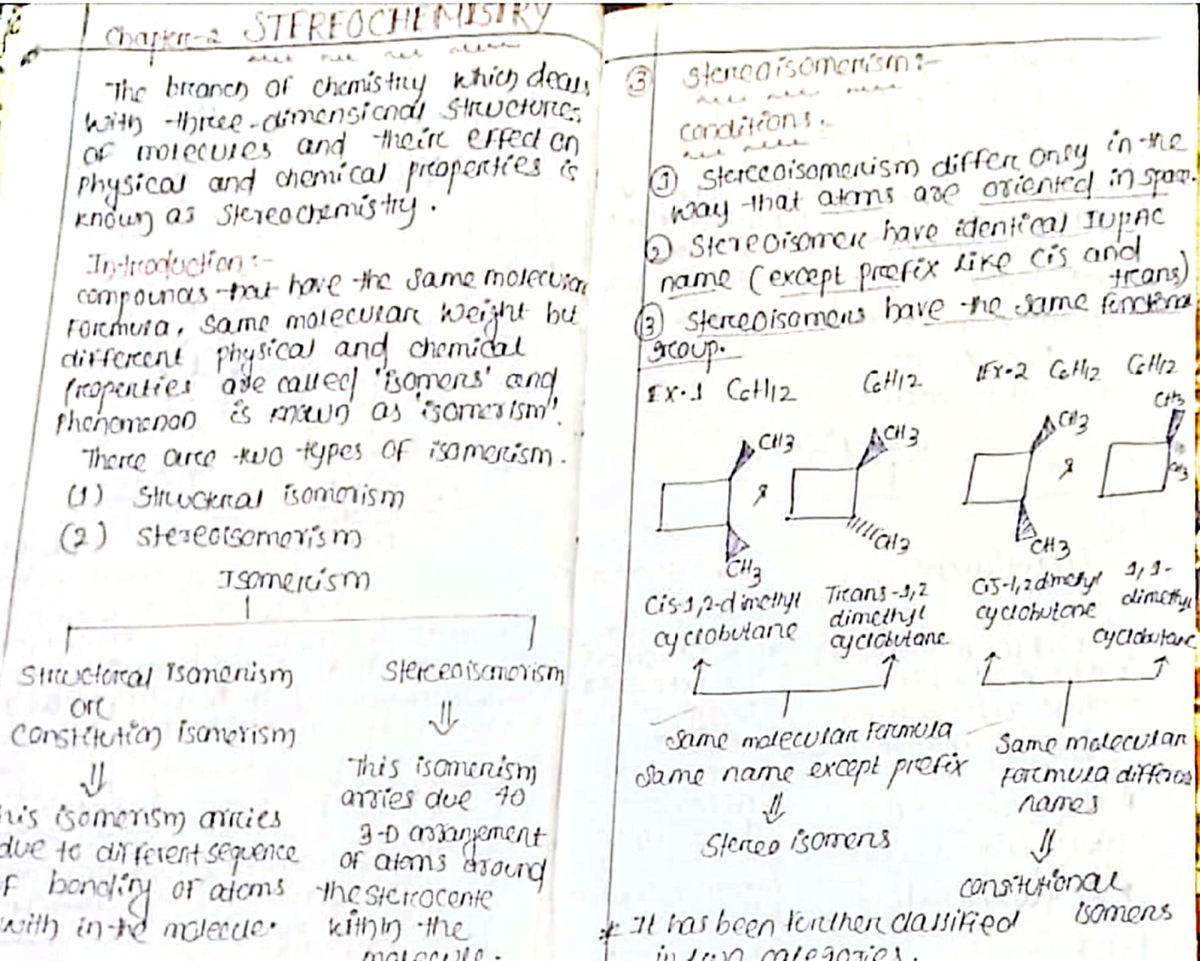 Chapter-2 STEREOCHEMISTRY
The branch of chemistry which deals
with three-dimensional structures
of molecules and their effect on
physical and chemical properties is
known as Stereochemistry.
Introduction:-
compounds that have the same molecular
formula, same molecular weight but
different physical and chemical
properties are called 'isomers' and
Phenomenon is known as 'isomerism'.
There are two types of isomerism.
(1) Structural isomerism
(2) stereoisomerism
Isomerism
Structural Isomerism
or
constitution isomerism
⇓
his isomerism arries
due to different sequence
f bonding of atoms
with in the molecule.
Stereoisomerism
⇓
This isomerism
arries due to
3-D arrangement
of atoms around
the sterrocente
within the
molecule.
③ Stereoisomerism:-
conditions:-
① stereoisomerism differ only in the
way that atoms are oriented in space.
② Stereoisomer have identical IUPAC
name (except prefix like cis and
trans)
③ Stereoisomers have the same functional
group.
Ex.1 C6H12 C6H12 Ex.2 C6H12 C6H12
CH3 CH3 CH3 CH3
& &
CH3 CH3 CH3 CH3
Cis-1,2-dimethyl
cyclobutane
Trans-1,2
dimethyl
cyclobutane
Cis-1,2 dimethyl
cyclobutane
1,1-
dimethyl
cyclobutane
same molecular formula
same name except prefix
⇓
Stereo isomers
Same molecular
formula different
names
⇓
constitutional
isomers
* It has been further classified
in two categories.